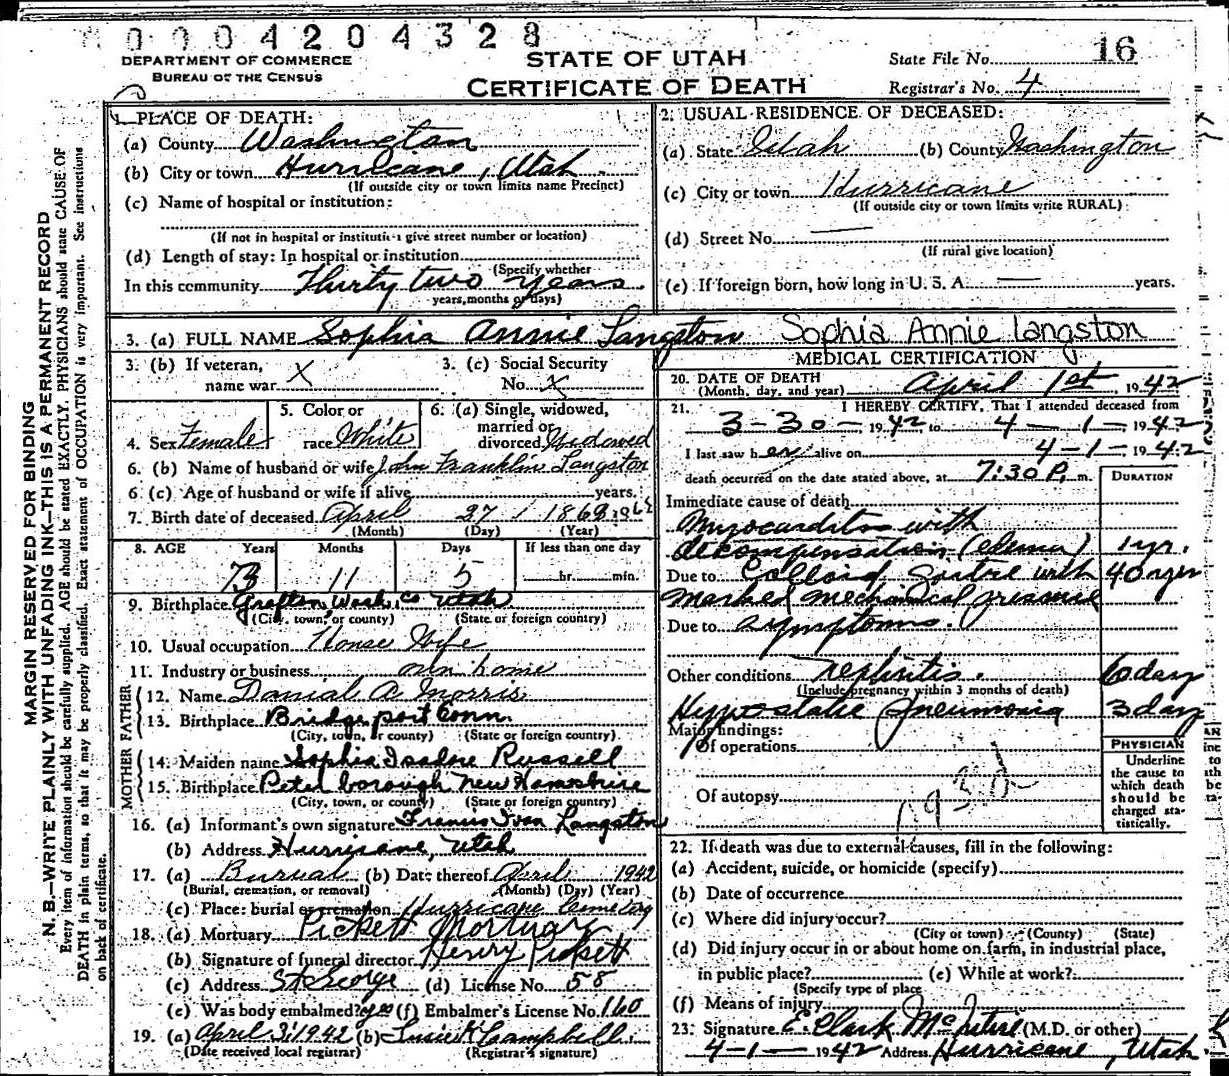 0004204328
DEPARTMENT OF COMMERCE
BUREAU OF THE CENSUS
STATE OF UTAH
CERTIFICATE OF DEATH
State File No. 16
Registrar's No. 4
MARGIN RESERVED FOR BINDING
N. B.—WRITE PLAINLY WITH UNFADING INK—THIS IS A PERMANENT RECORD
Every item of information should be carefully supplied. AGE should be stated EXACTLY. PHYSICIANS should state CAUSE OF
DEATH in plain terms, so that it may be properly classified. Exact statement of OCCUPATION is very important. See instructions
on back of certificate.
1. PLACE OF DEATH:
(a) County Washington
(b) City or town Hurricane, Utah.
(If outside city or town limits name Precinct)
(c) Name of hospital or institution:
(If not in hospital or institution give street number or location)
(d) Length of stay: In hospital or institution
(Specify whether
In this community Thirty two years.
years, months or days)
2. USUAL RESIDENCE OF DECEASED:
(a) State Utah (b) County Washington
(c) City or town Hurricane
(If outside city or town limits write RURAL)
(d) Street No. —
(If rural give location)
(e) If foreign born, how long in U. S. A. — years.
3. (a) FULL NAME Sophia Annie Langston Sophia Annie Langston
3. (b) If veteran, name war X
3. (c) Social Security No. X
4. Sex Female
5. Color or race White
6. (a) Single, widowed, married or divorced Widowed
6. (b) Name of husband or wife John Franklin Langston
6. (c) Age of husband or wife if alive years.
7. Birth date of deceased April 27 1868
(Month) (Day) (Year)
8. AGE Years Months Days If less than one day
73 11 5 hr. min.
9. Birthplace Grafton Wash. Co Utah
(City, town, or county) (State or foreign country)
10. Usual occupation House Wife
11. Industry or business own home
FATHER
12. Name Danial A Morris
13. Birthplace Bridgeport Conn.
(City, town, or county) (State or foreign country)
MOTHER
14. Maiden name Sophia Isadore Russell
15. Birthplace Peterborough New Hampshire
(City, town, or county) (State or foreign country)
16. (a) Informant's own signature Francis Ivan Langston
(b) Address Hurricane, Utah
17. (a) Burial (b) Date thereof April 1942
(Burial, cremation, or removal) (Month) (Day) (Year)
(c) Place: burial or cremation Hurricane Cemetery
18. (a) Mortuary Pickett Mortuary
(b) Signature of funeral director Henry Pickett
(c) Address St George (d) License No. 58
(e) Was body embalmed? yes (f) Embalmer's License No. 160
19. (a) April 3, 1942 (b) Susie K Campbell.
(Date received local registrar) (Registrar's signature)
MEDICAL CERTIFICATION
20. DATE OF DEATH
(Month, day, and year) April 1st, 1942
21. I HEREBY CERTIFY, That I attended deceased from
3-30-, 1942 to 4-1-, 1942
I last saw her alive on 4-1-, 1942
death occurred on the date stated above, at 7:30 P. m.
DURATION
Immediate cause of death
Myocarditis with
decompensation (edema) 1 yr.
Due to Colloid Goitre with 40 yrs
marked mechanical pressure
Due to symptoms.
Other conditions Nephritis. 6 day
(Include pregnancy within 3 months of death)
Hypostatic Pneumonia 3 day
Major findings:
Of operations
Of autopsy
PHYSICIAN
Underline
the cause to
which death
should be
charged sta-
tistically.
22. If death was due to external causes, fill in the following:
(a) Accident, suicide, or homicide (specify)
(b) Date of occurrence
(c) Where did injury occur?
(City or town) (County) (State)
(d) Did injury occur in or about home on farm, in industrial place,
in public place? (e) While at work?
(Specify type of place
(f) Means of injury
23. Signature E. Clark McIntire (M.D. or other)
4-1-1942 Address Hurricane, Utah.